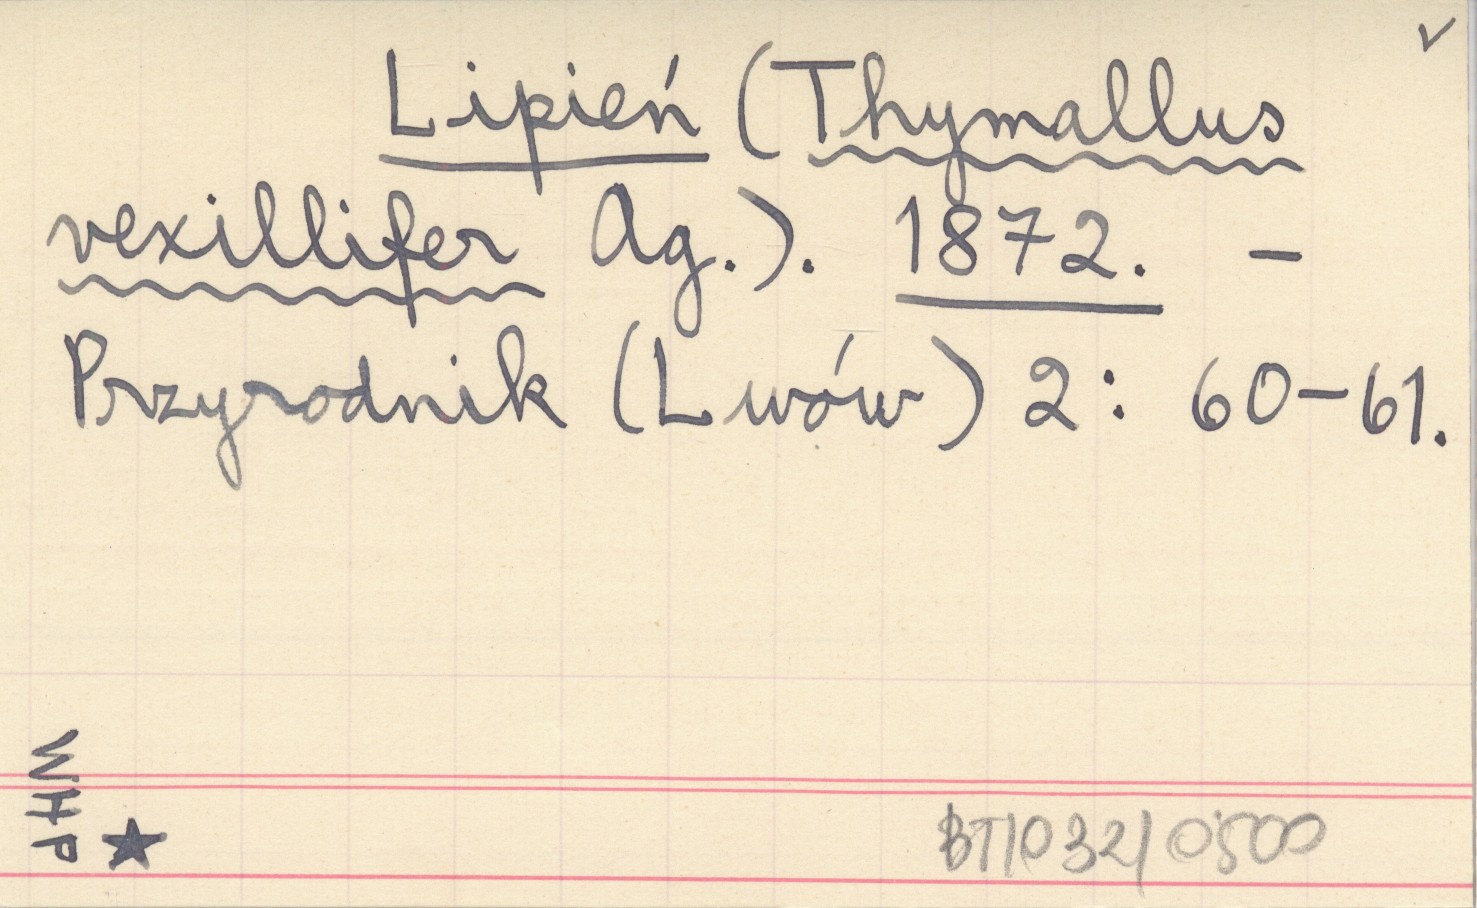 Lipień (Thymallus
vexillifer Ag.). 1872. –
Przyrodnik (Lwów) 2: 60–61.
WHP
BT/032/0500